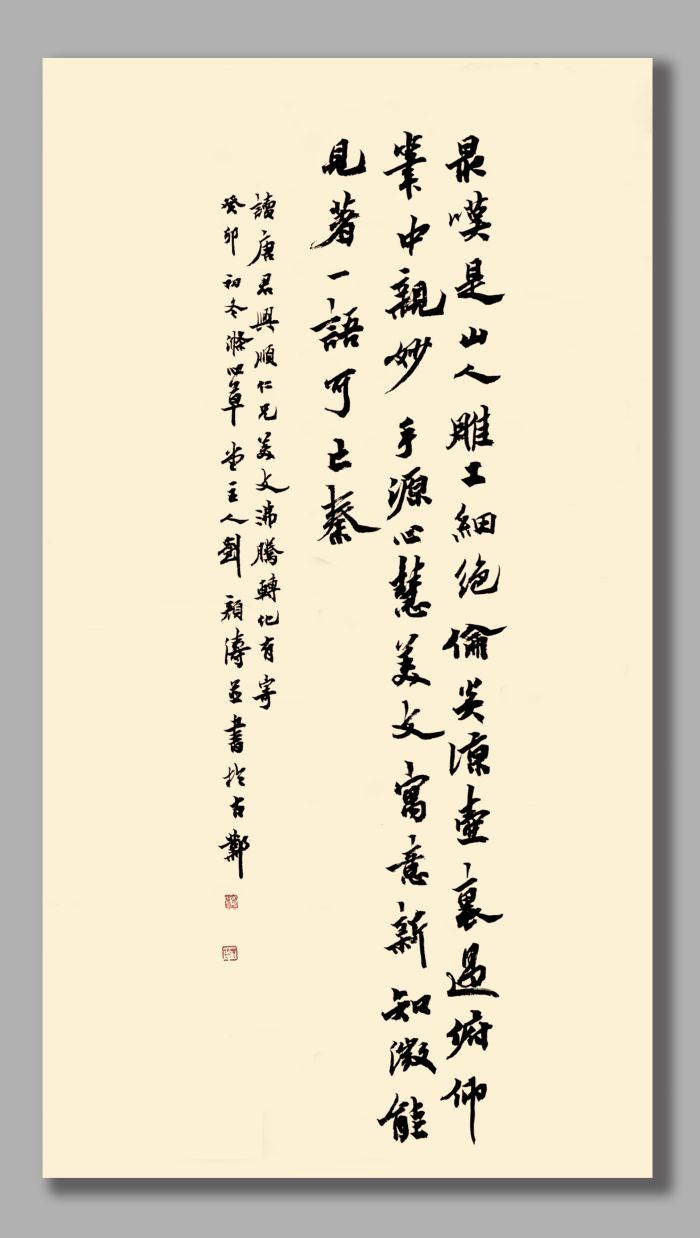 最嘆是山人雕工細絕倫炎涼壺裏過俯仰
業中親妙手源心慧美文寓意新知微能
見著一語可亡秦
讀唐君興順仁兄美文沸騰轉化有寄
癸卯初冬滌心草堂主人劉顏濤並書於古鄴